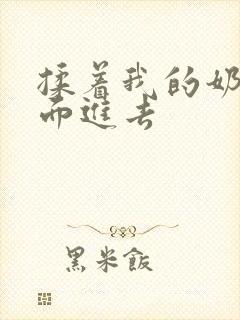 揉着我的奶
而進去
黑米飯